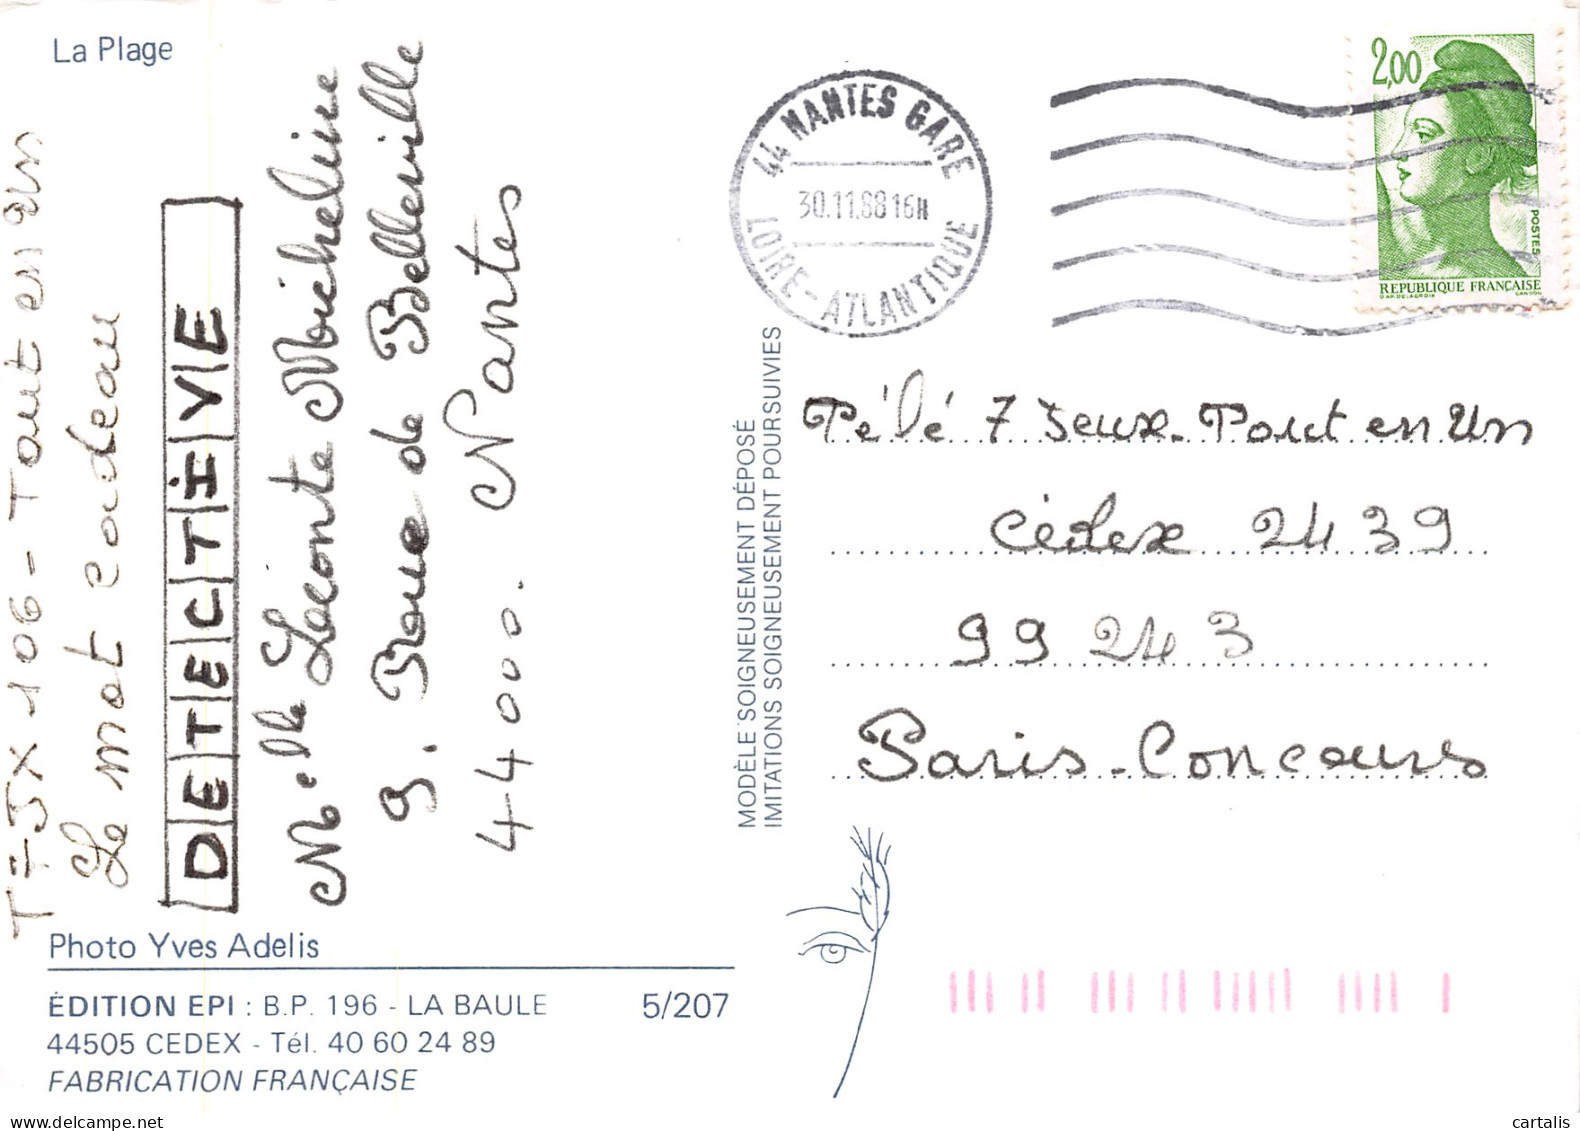 La Plage
T=JX 106 - Tout en Un
Le mot cadeau
DETECTIVE
Melle Leconte Micheline
9. Roue de Belleville
44000. Nantes
Photo Yves Adelis
ÉDITION EPI : B.P. 196 - LA BAULE 5/207
44505 CEDEX - Tél. 40 60 24 89
FABRICATION FRANÇAISE
MODÈLE SOIGNEUSEMENT DÉPOSÉ
IMITATIONS SOIGNEUSEMENT POURSUIVIES
44 NANTES GARE
30.11.88 16H
LOIRE-ATLANTIQUE
2,00
POSTES
REPUBLIQUE FRANÇAISE
D'AP. DELACROIX GANDON
Télé 7 Jeux - Tout en Un
Cédex 2439
99 243
Paris - Concours
cartalis